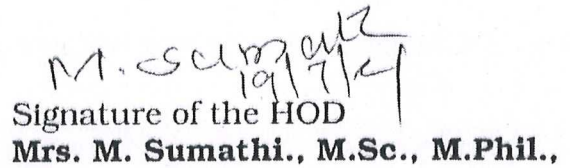 M. Sumathi
19/7/21
Signature of the HOD
Mrs. M. Sumathi., M.Sc., M.Phil.,